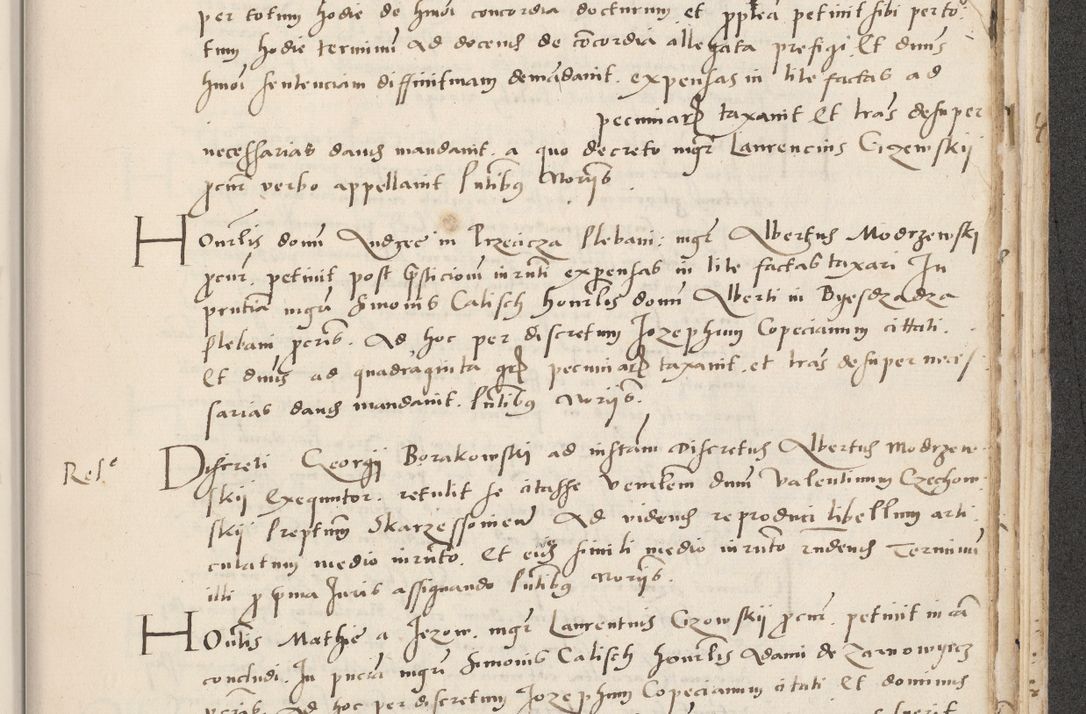 per totum hodie de hmoi concordia docturum et pptea petiuit sibi per to
tum hodie terminum ad docend de concordia allegata prefigi Et dnus
hmoi sentenciam diffinitiuam demandauit. expensas in lite factas ad
pecuniar taxauit Et tras desuper
necessarias dand mandauit. a quo decreto mgr Laurencius Cizewskij
pcur verbo appellauit Pntibus Notorijs
Honrlis domi Andree in Przecicza Plebani: mgr Albertus Modrzewski
pcur petiuit post expensas in lite factas taxari In
pntia mgri Simonis Calisch honrlis domi Alberti in Byesdzadza
Plebani pcuris. Ad hoc per discretum Jozephum Copecianum cittati.
Et dnus ad quadraginta gr pecuniar taxauit. et tras desuper neces
sarias dand mandauit. Pntibus Notorijs.
Rele
Discreti Georgij Borakowski ad instam Discretus Albertus Modrzew
skij Exequutor. retulit se citasse Vendem dnum Valentinum Czechow
skij Preptum Skarzessouien Ad vidend reproduci libellum arti
culatum medio iurnto. Et eius simili medio iurnto rndend Terminum
illi p pma Juris assignando Pntibus Notorijs.
Honrlis Mathie a Jezow. mgr Laurentius Cizowskij pcur. petiuit in ca
concludi. In pncia mgri Simonis Calisch honrlis Adami de Zarnowyecz
pcuris Ad hoc per discretum Jozephum Copecianum citati Et dominus